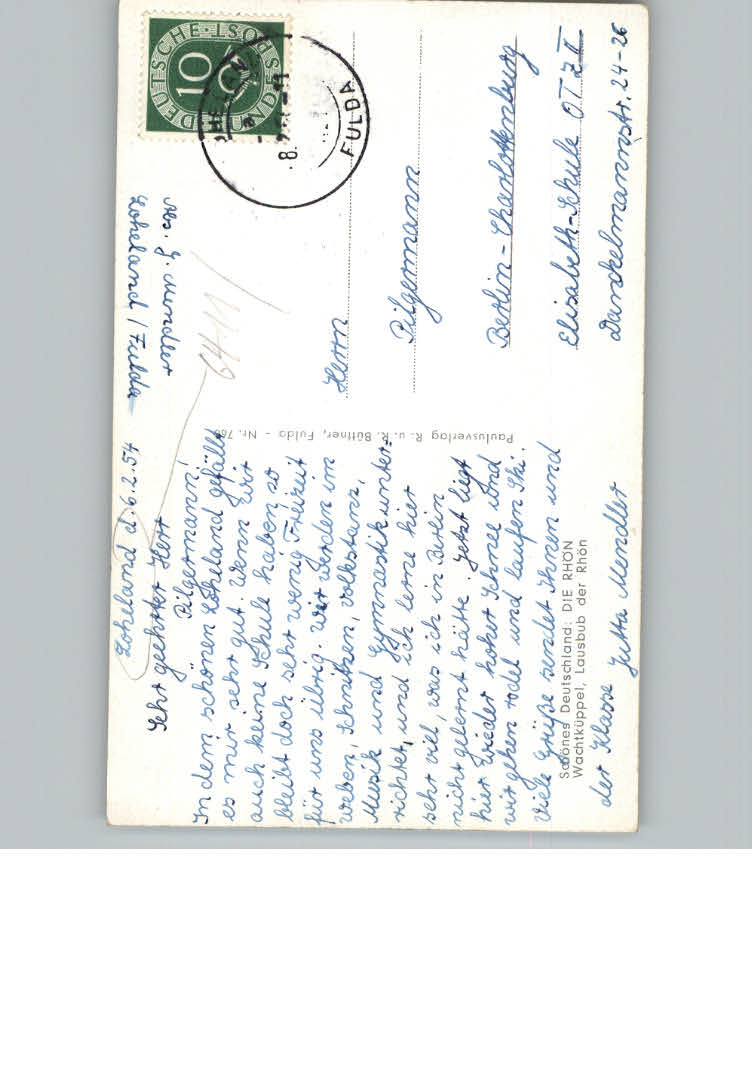 Loheland d. 6.2.54
Sehr geehrter Herr
Pilgermann!
In dem schönen Loheland gefällt
es mir sehr gut. Wenn wir
auch keine Schule haben so
bleibt doch sehr wenig Freizeit
für uns übrig. Wir werden im
weben, Schnitzen, Volkstanz,
Musik und Gymnastik unter=
richtet, und ich lerne hier
sehr viel, was ich in Berlin
nicht gelernt hätte. Jetzt liegt
hier wieder hoher Schnee und
wir gehen rodel und laufen Ski.
Viele Grüße sendet Ihnen und
der Klasse Jutta Mendler
Schönes Deutschland: DIE RHÖN
Wachtküppel, Lausbub der Rhön
Paulusverlag R. u. R. Büttner, Fulda - Nr. 768
Abs. J. Mendler
Loheland / Fulda
DEUTSCHE BUNDESPOST
10
FULDA
Herrn
Pilgermann
Berlin-Charlottenburg
Elisabeth-Schule OTZ II
Danckelmannstr. 24-26